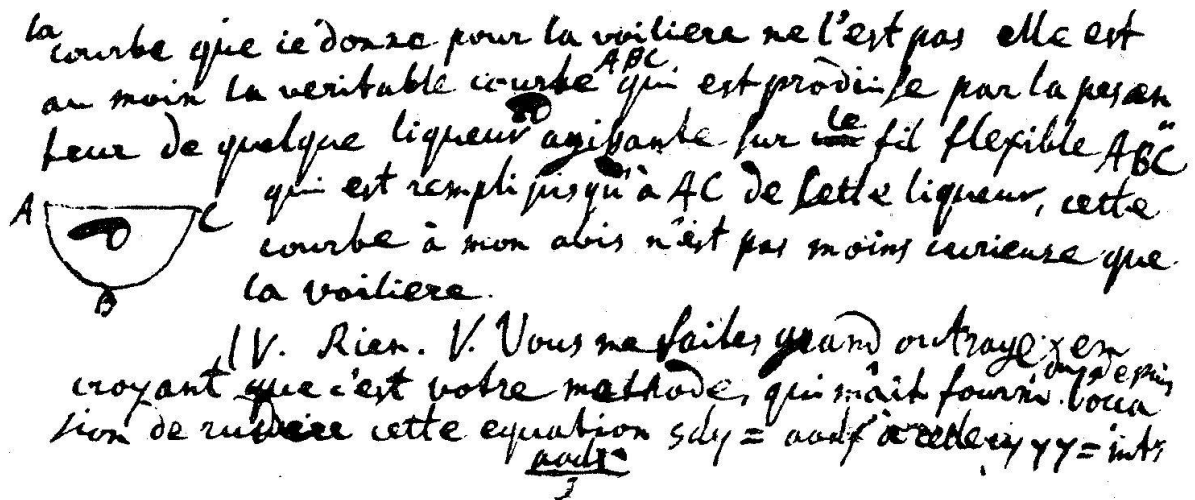 la
courbe que ie donne pour la voiliere ne l'est pas elle est
au moin la veritable courbe ABC qui est produise par la pesan
teur de quelque liqueur agissante sur le fil flexible ABC
qui est rempli jusqu'à AC de cette liqueur, cette
A C
courbe à mon avis n'est pas moins curieuse que
B
la voiliere.
IV. Rien. V. Vous me faites grand outrage en
croyant que c'est votre methode, qui m'ait fourni l'occa
sion de cette equation sdy = à yy =